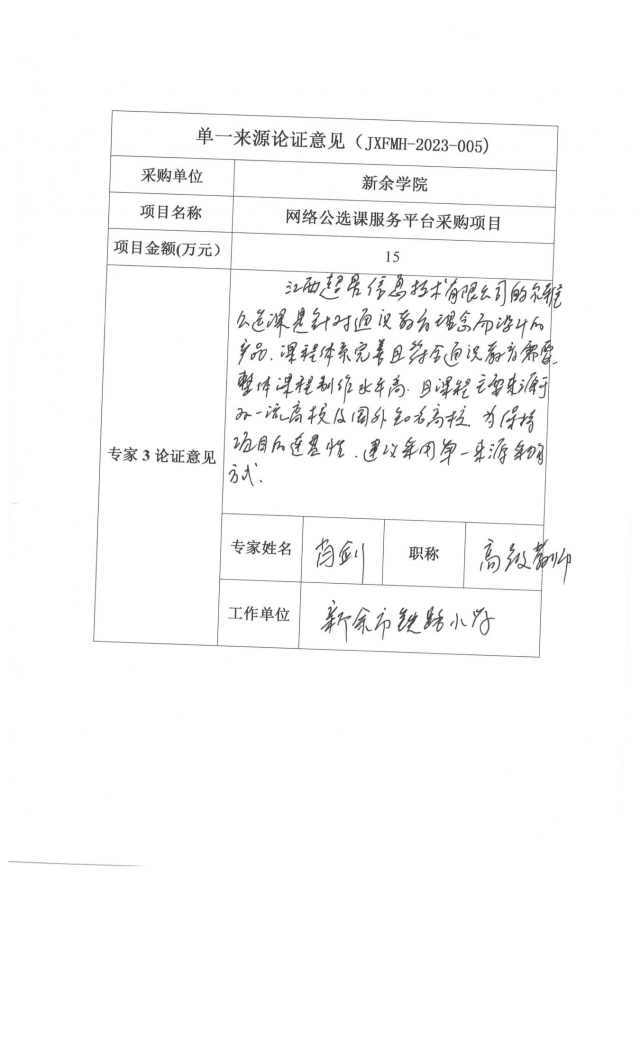 单一来源论证意见（JXFMH-2023-005)
采购单位 新余学院
项目名称 网络公选课服务平台采购项目
项目金额(万元） 15
专家 3 论证意见
江西超星信息技术有限公司的尔雅
公选课是针对通识教育理念而设计的
产品. 课程体系完善且符合通识教育需要,
整体课程制作水平高. 且课程主要来源于
一流高校及国外知名高校. 为保持
项目的连基性. 建议采用单一来源采购
方式.
专家姓名 肖剑 职称 高级教师
工作单位 新余市铁路小学